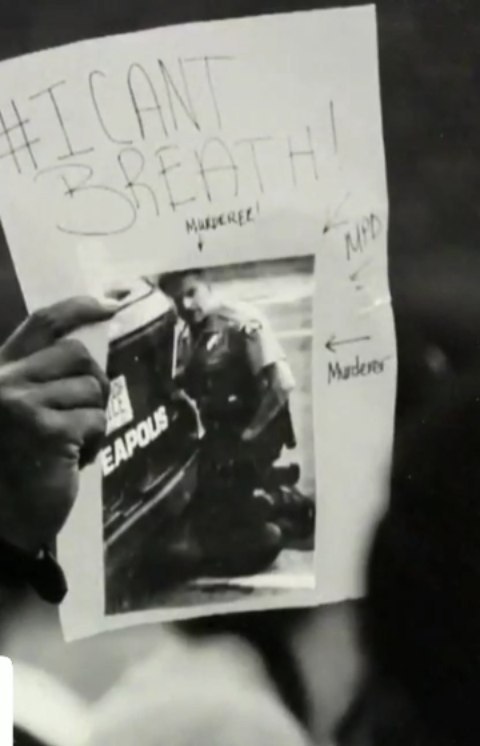 #I CANT
BREATH!
MURDERER!
MPD
Murderer
EAPOLIS